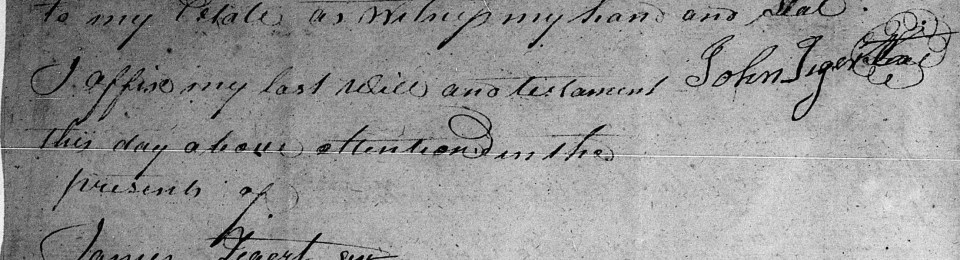 to my Estate as Witness my hand and Seal.
I affix my last Will and testament John Tigert Seal
this day above attentiond in the
presents of
James Tigert